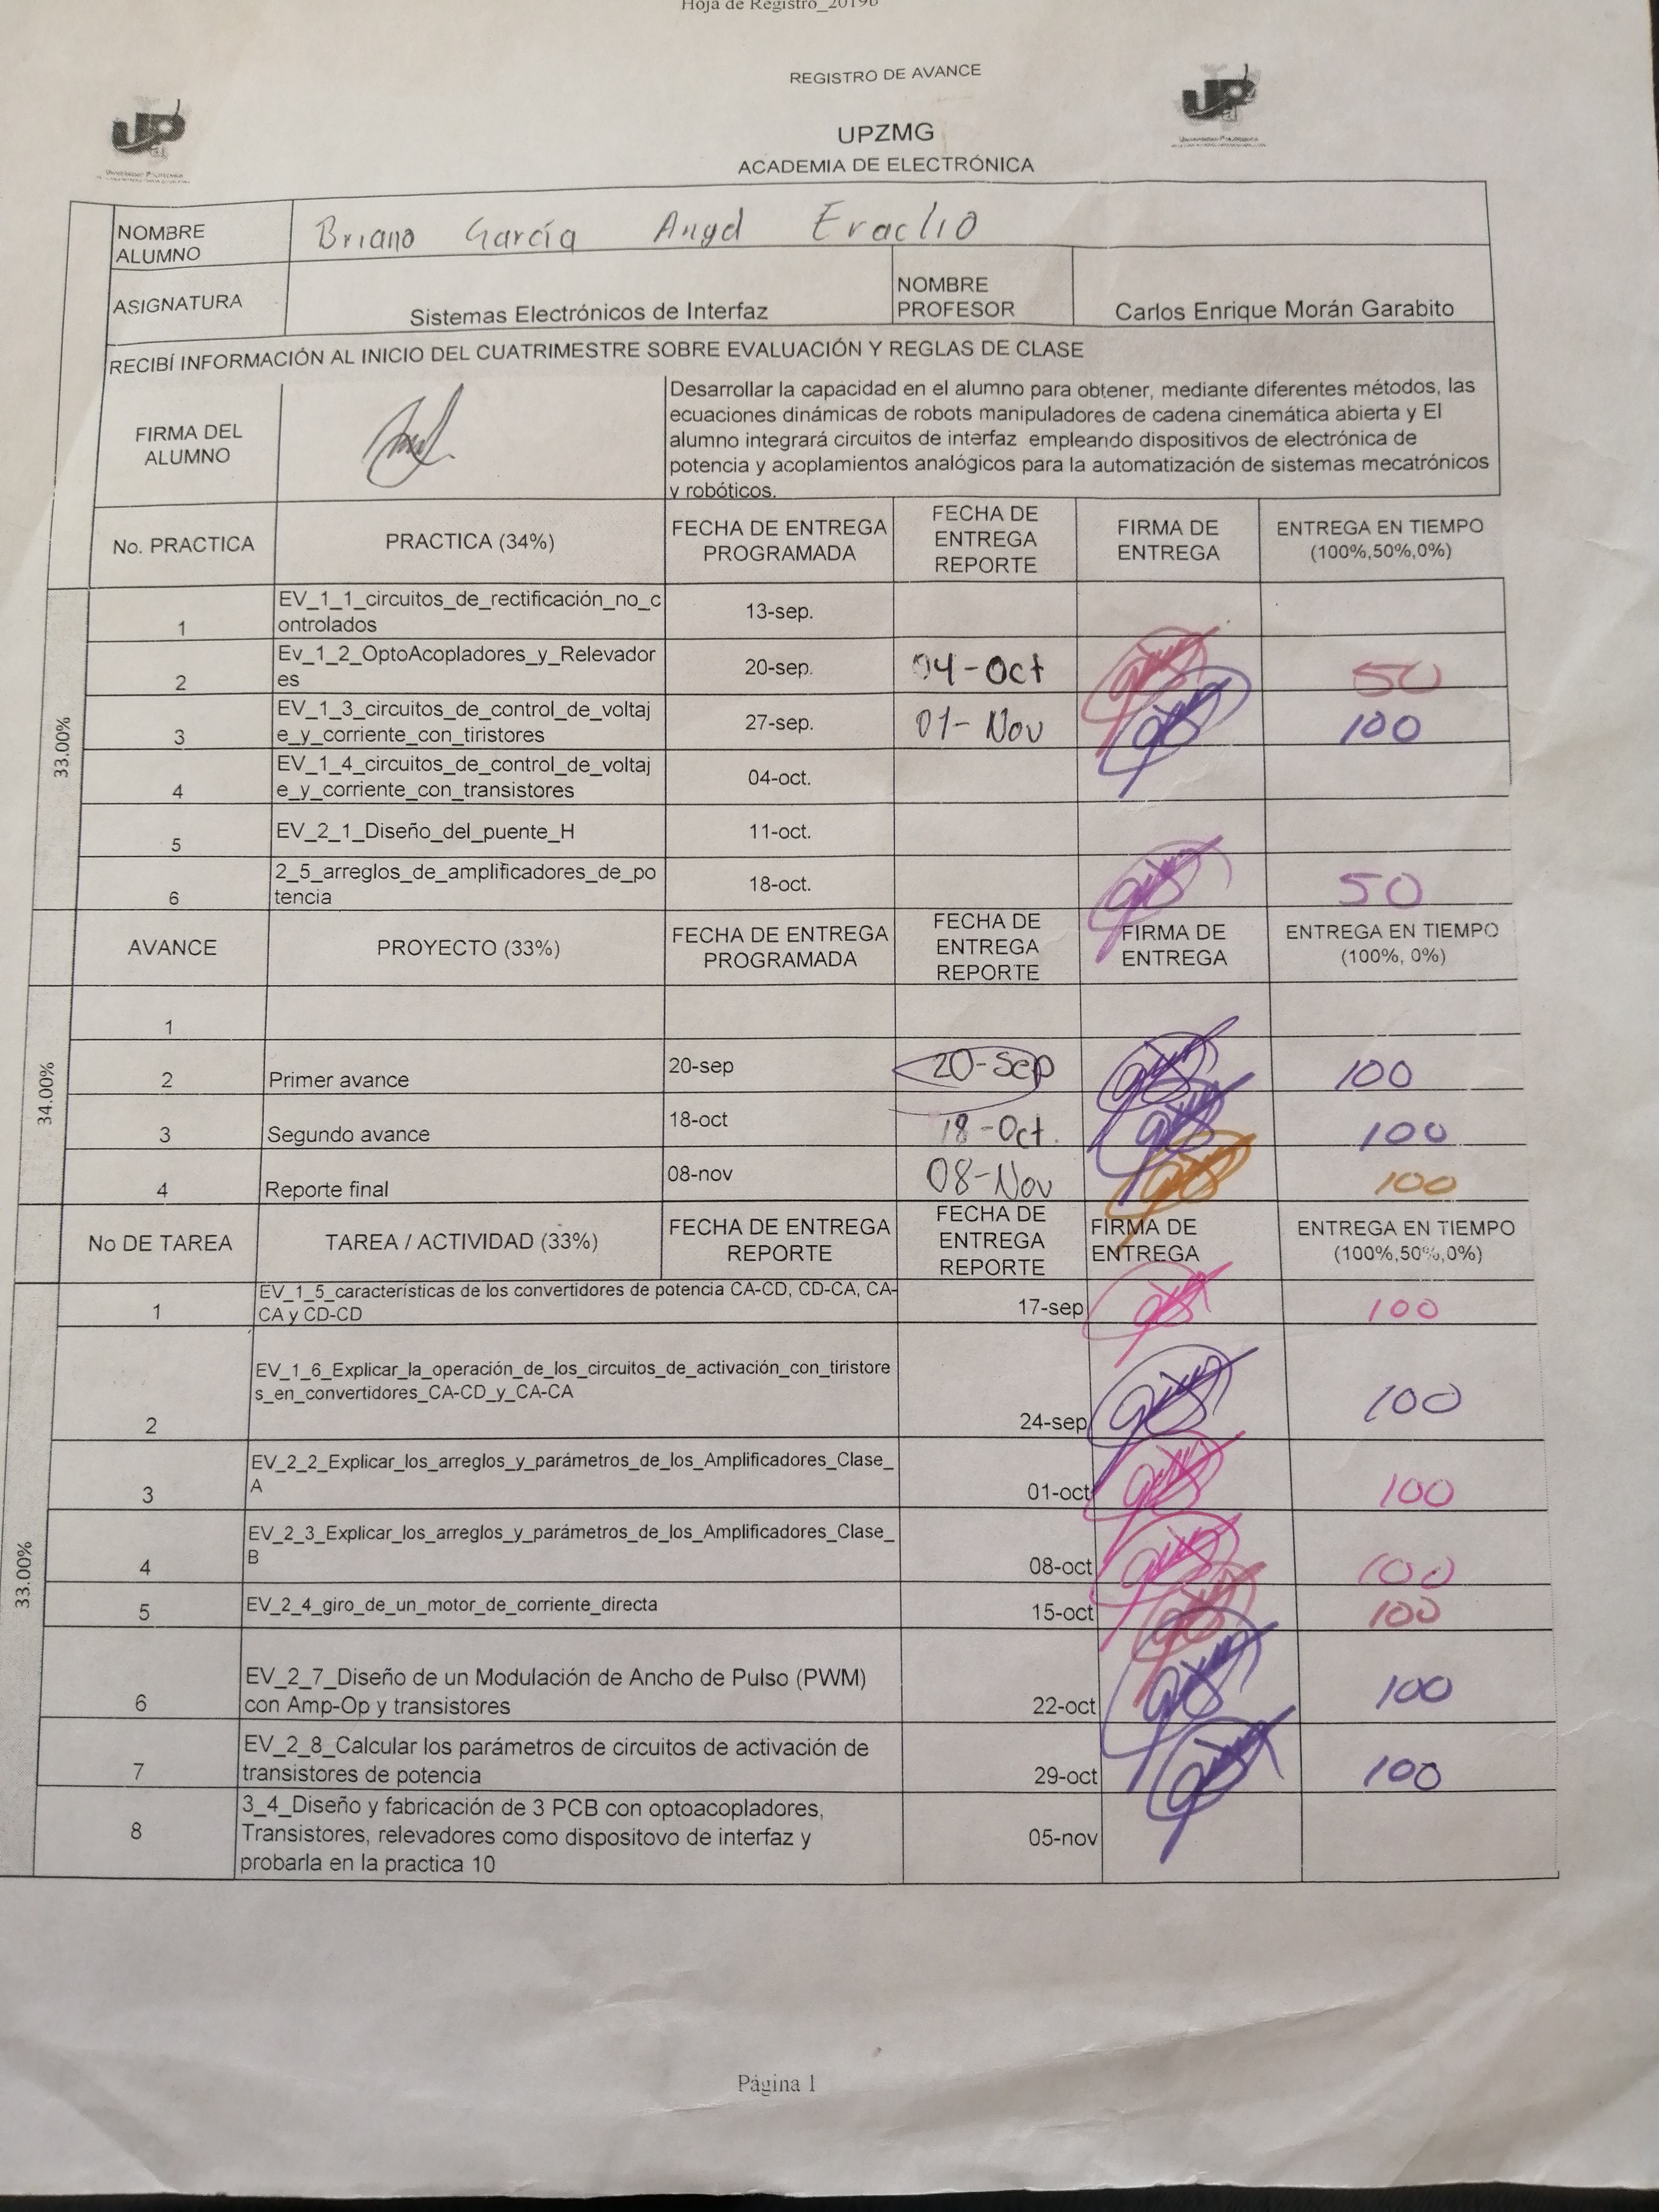 Hoja de Registro_2019b
REGISTRO DE AVANCE
UPZMG
ACADEMIA DE ELECTRÓNICA
NOMBRE
ALUMNO
Briano García Angel Eraclio
ASIGNATURA
Sistemas Electrónicos de Interfaz
NOMBRE
PROFESOR
Carlos Enrique Morán Garabito
RECIBÍ INFORMACIÓN AL INICIO DEL CUATRIMESTRE SOBRE EVALUACIÓN Y REGLAS DE CLASE
FIRMA DEL
ALUMNO
Desarrollar la capacidad en el alumno para obtener, mediante diferentes métodos, las
ecuaciones dinámicas de robots manipuladores de cadena cinemática abierta y El
alumno integrará circuitos de interfaz empleando dispositivos de electrónica de
potencia y acoplamientos analógicos para la automatización de sistemas mecatrónicos
y robóticos.
No. PRACTICA
PRACTICA (34%)
FECHA DE ENTREGA
PROGRAMADA
FECHA DE
ENTREGA
REPORTE
FIRMA DE
ENTREGA
ENTREGA EN TIEMPO
(100%,50%,0%)
33.00%
1
EV_1_1_circuitos_de_rectificación_no_c
ontrolados
13-sep.
2
Ev_1_2_OptoAcopladores_y_Relevador
es
20-sep.
04-Oct
50
3
EV_1_3_circuitos_de_control_de_voltaj
e_y_corriente_con_tiristores
27-sep.
01-Nov
100
4
EV_1_4_circuitos_de_control_de_voltaj
e_y_corriente_con_transistores
04-oct.
5
EV_2_1_Diseño_del_puente_H
11-oct.
6
2_5_arreglos_de_amplificadores_de_po
tencia
18-oct.
50
AVANCE
PROYECTO (33%)
FECHA DE ENTREGA
PROGRAMADA
FECHA DE
ENTREGA
REPORTE
FIRMA DE
ENTREGA
ENTREGA EN TIEMPO
(100%, 0%)
34.00%
1
2
Primer avance
20-sep
20-Sep
100
3
Segundo avance
18-oct
18-Oct.
100
4
Reporte final
08-nov
08-Nov
100
No DE TAREA
TAREA / ACTIVIDAD (33%)
FECHA DE ENTREGA
REPORTE
FECHA DE
ENTREGA
REPORTE
FIRMA DE
ENTREGA
ENTREGA EN TIEMPO
(100%,50%,0%)
33.00%
1
EV_1_5_características de los convertidores de potencia CA-CD, CD-CA, CA-
CA y CD-CD
17-sep
100
2
EV_1_6_Explicar_la_operación_de_los_circuitos_de_activación_con_tiristore
s_en_convertidores_CA-CD_y_CA-CA
24-sep
100
3
EV_2_2_Explicar_los_arreglos_y_parámetros_de_los_Amplificadores_Clase_
A
01-oct
100
4
EV_2_3_Explicar_los_arreglos_y_parámetros_de_los_Amplificadores_Clase_
B
08-oct
100
5
EV_2_4_giro_de_un_motor_de_corriente_directa
15-oct
100
6
EV_2_7_Diseño de un Modulación de Ancho de Pulso (PWM)
con Amp-Op y transistores
22-oct
100
7
EV_2_8_Calcular los parámetros de circuitos de activación de
transistores de potencia
29-oct
100
8
3_4_Diseño y fabricación de 3 PCB con optoacopladores,
Transistores, relevadores como dispositovo de interfaz y
probarla en la practica 10
05-nov
Página 1